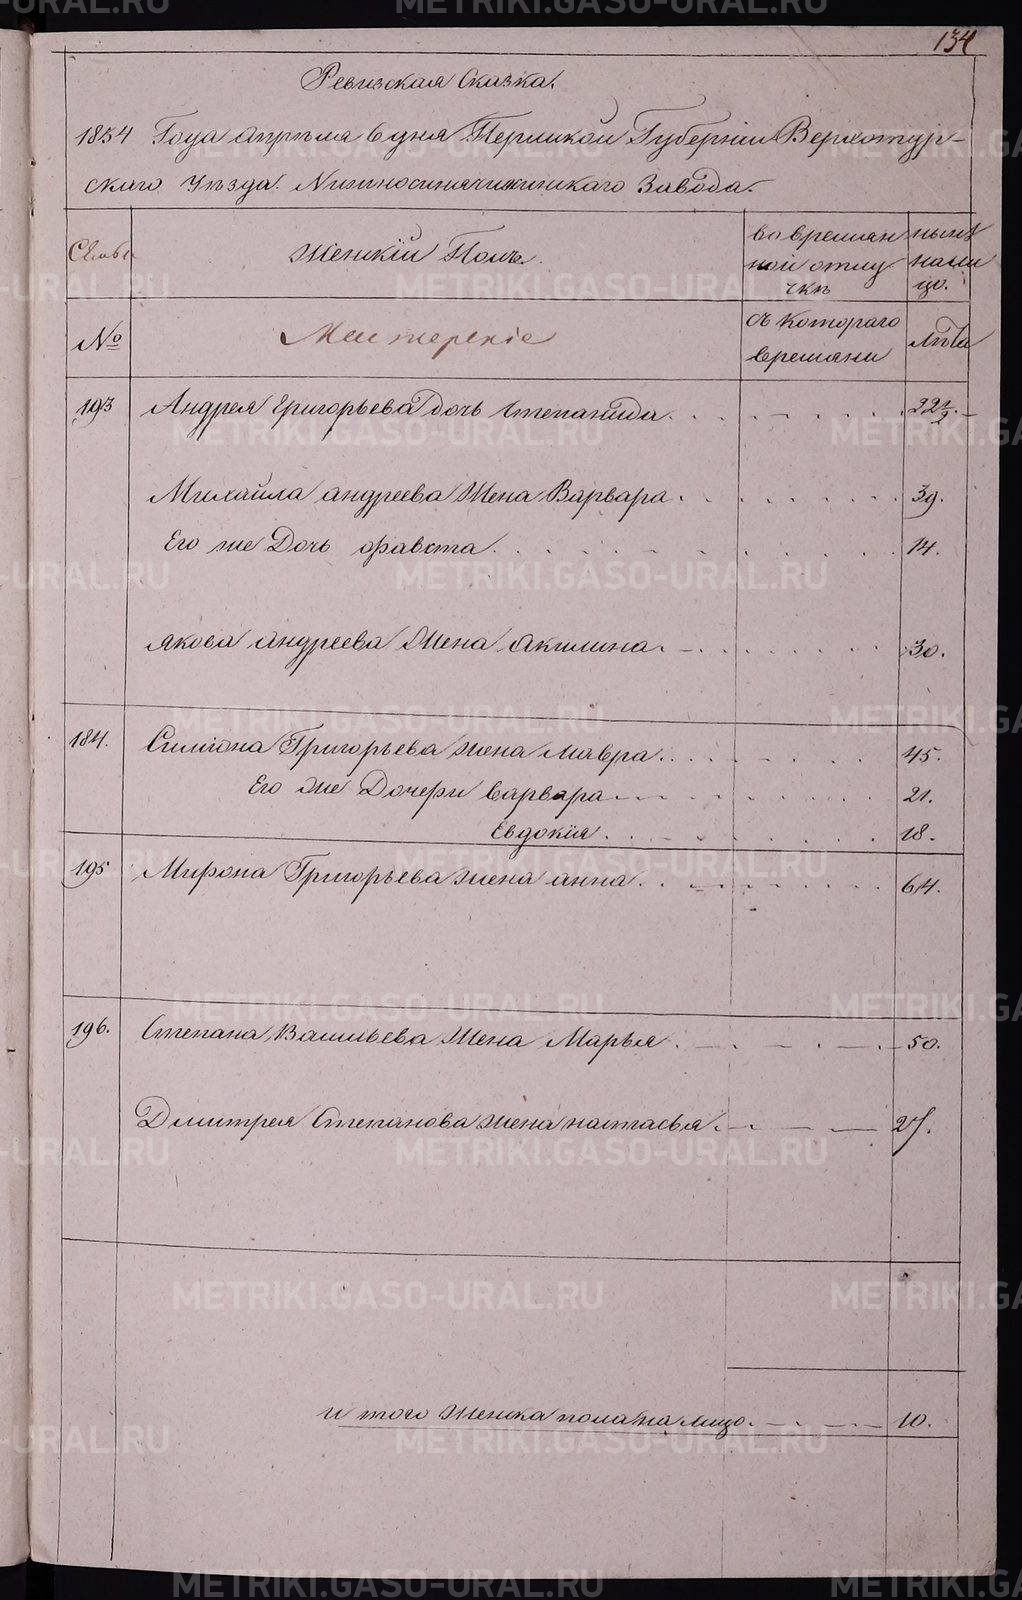 134
Ревизская Сказка.
1854 Года апрѣля 6 дня Пермской Губерніи Верхотур-
скаго Уѣзда. Нижносинячихинскаго Завода.
Семьи
Женскій Полъ.
во времян
ной отлу
чкѣ
нынѣ
нали
цо.
№
Мастерскіе
съ котораго
времяни
лѣта
193 Андрея Григорьева дочь Степанида. 22 1/2
Михайла андреева Жена Варвара. 39.
Его же Дочь фавста. 14.
якова андреева Жена акилина. 30.
184. Симиона Григорьева жена мавра. 45.
Его же Дочери варвара 21.
Евдокія. 18.
195 Мирона Григорьева жена анна. 64.
196. Степана Васильева Жена Марья. 50.
Дмитрея Степанова жена настасья. 27.
и того женска пола на лицо. 10.
METRIKI.GASO-URAL.RU